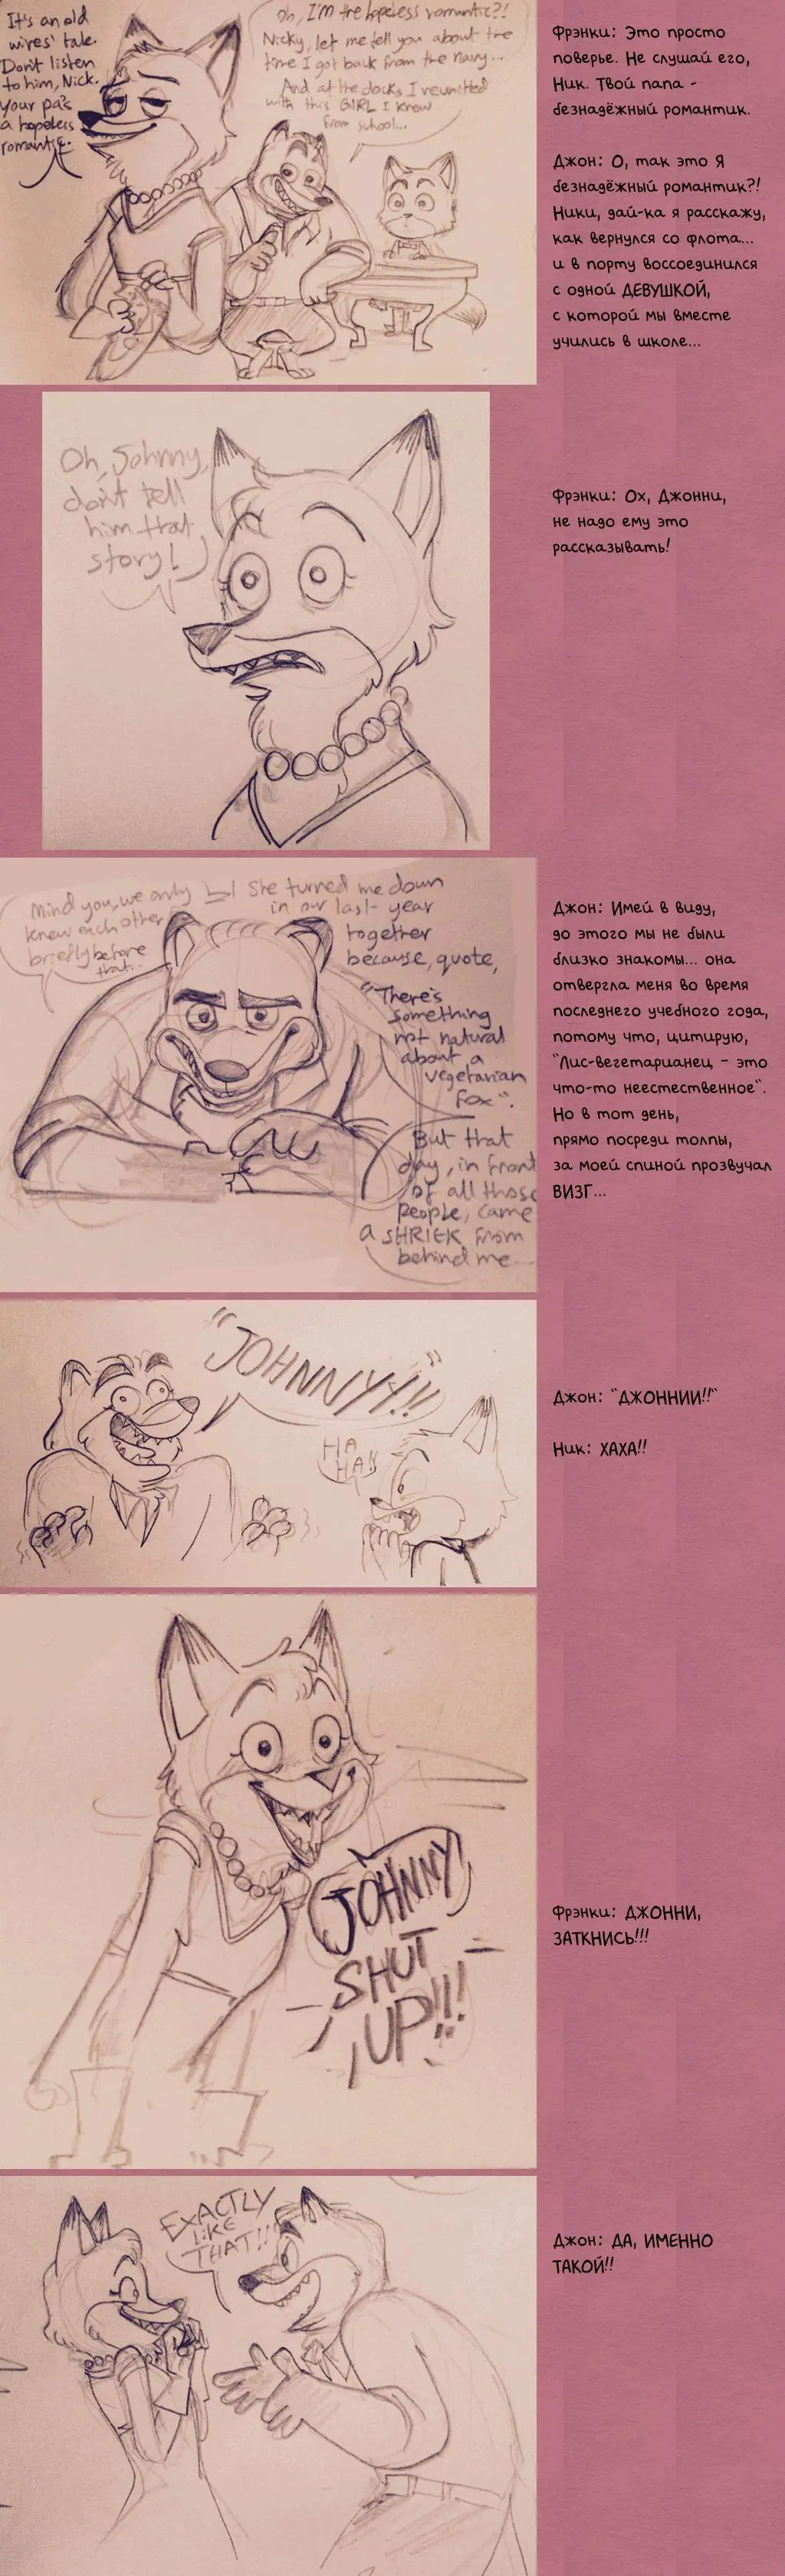 It's an old
wives' tale.
Don't listen
to him, Nick.
your pa's
a hopeless
romantic.
Oh, I'm the hopeless romantic?!
Nicky, let me tell you about the
time I got back from the navy...
And at the docks I reunited
with this GIRL I knew
from school...
Фрэнки: Это просто
поверье. Не слушай его,
Ник. Твой папа -
безнадёжный романтик.
Джон: О, так это Я
безнадёжный романтик?!
Ники, дай-ка я расскажу,
как вернулся со флота...
и в порту воссоединился
с одной ДЕВУШКОЙ,
с которой мы вместе
учились в школе...
Oh, Johnny,
don't tell
him that
story!
Фрэнки: Ох, Джонни,
не надо ему это
рассказывать!
Mind you, we only
knew each other
briefly before
that...
She turned me down
in our last year
together
because, quote,
"There's
something
not natural
about a
vegetarian
fox".
But that
day, in front
of all those
people, came
a SHRIEK from
behind me...
Джон: Имей в виду,
до этого мы не были
близко знакомы... она
отвергла меня во время
последнего учебного года,
потому что, цитирую,
"Лис-вегетарианец - это
что-то неестественное".
Но в тот день,
прямо посреди толпы,
за моей спиной прозвучал
ВИЗГ...
"JOHNNYY!!"
HA
HA!!
Джон: "ДЖОННИИ!!"
Ник: ХАХА!!
JOHNNY
SHUT
UP!!!
Фрэнки: ДЖОННИ,
ЗАТКНИСЬ!!!
EXACTLY
LIKE
THAT!!
Джон: ДА, ИМЕННО
ТАКОЙ!!